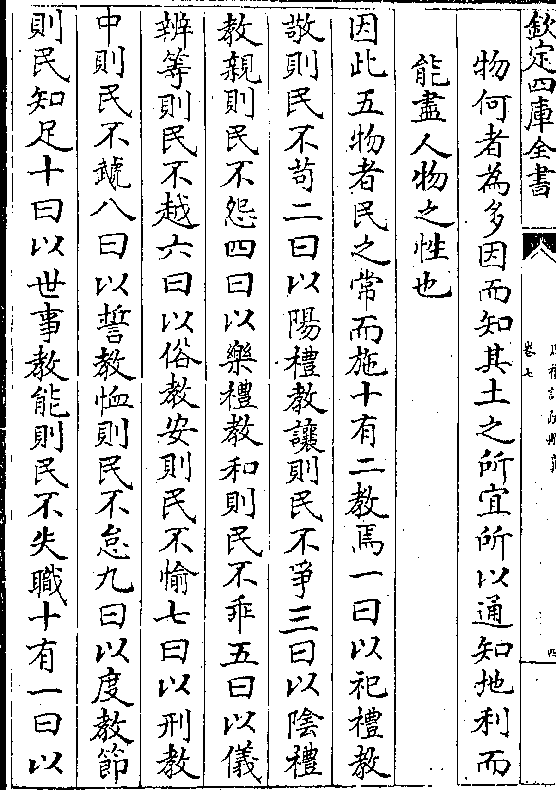 欽定四庫全書
卷七
四
物何者為多因而知其土之所宜所以通知地利而
能盡人物之性也
因此五物者民之常而施十有二教焉一曰以祀禮教
敬則民不苟二曰以陽禮教讓則民不爭三曰以陰禮
教親則民不怨四曰以樂禮教和則民不乖五曰以儀
辨等則民不越六曰以俗教安則民不愉七曰以刑教
中則民不虣八曰以誓教恤則民不怠九曰以度教節
則民知足十曰以世事教能則民不失職十有一曰以